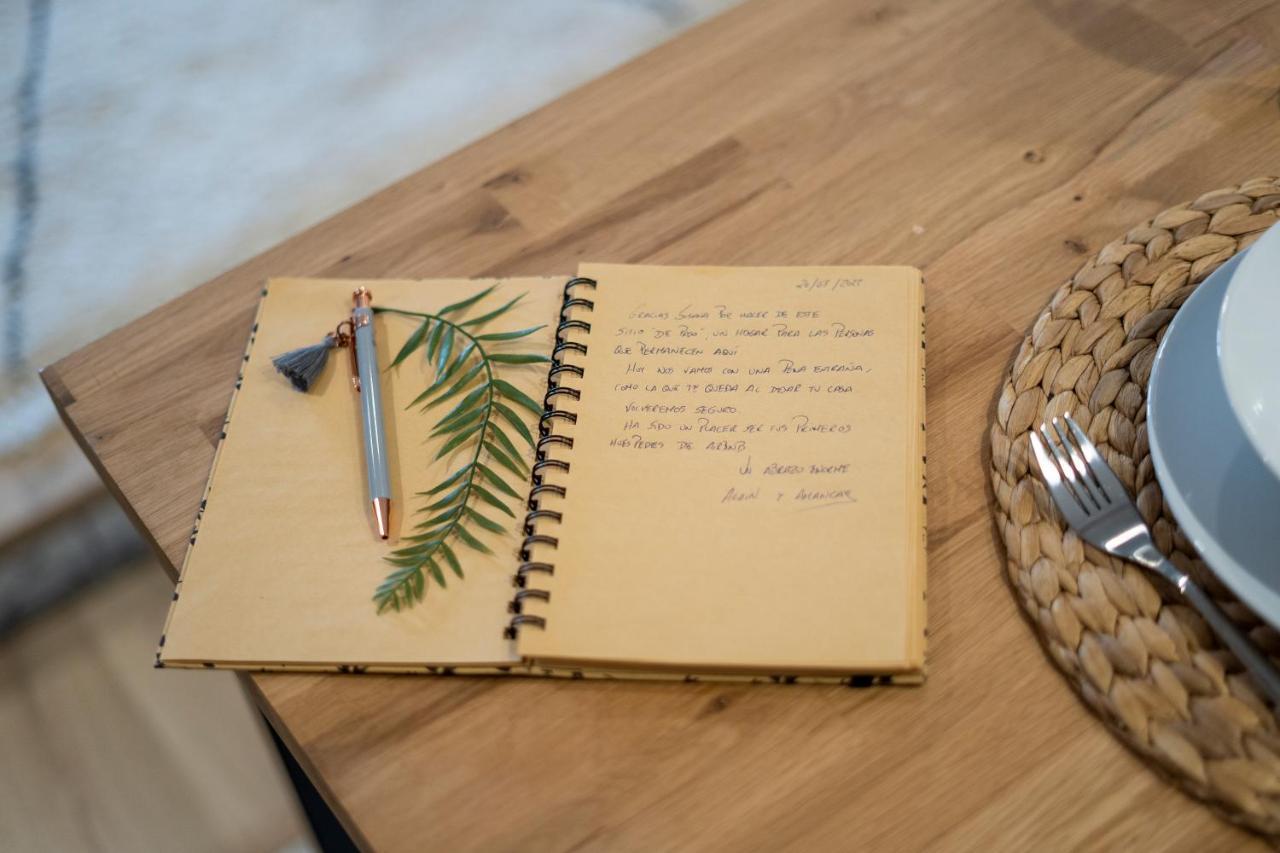 Gracias Susana por hacer de este
sitio "de paso", un hogar para las personas
que permanecen aquí
Hoy nos vamos con una pena extraña,
como la que te queda al dejar tu casa
volveremos seguro.
Ha sido un placer ser tus primeros
huéspedes de Airbnb
Un abrazo enorme
y